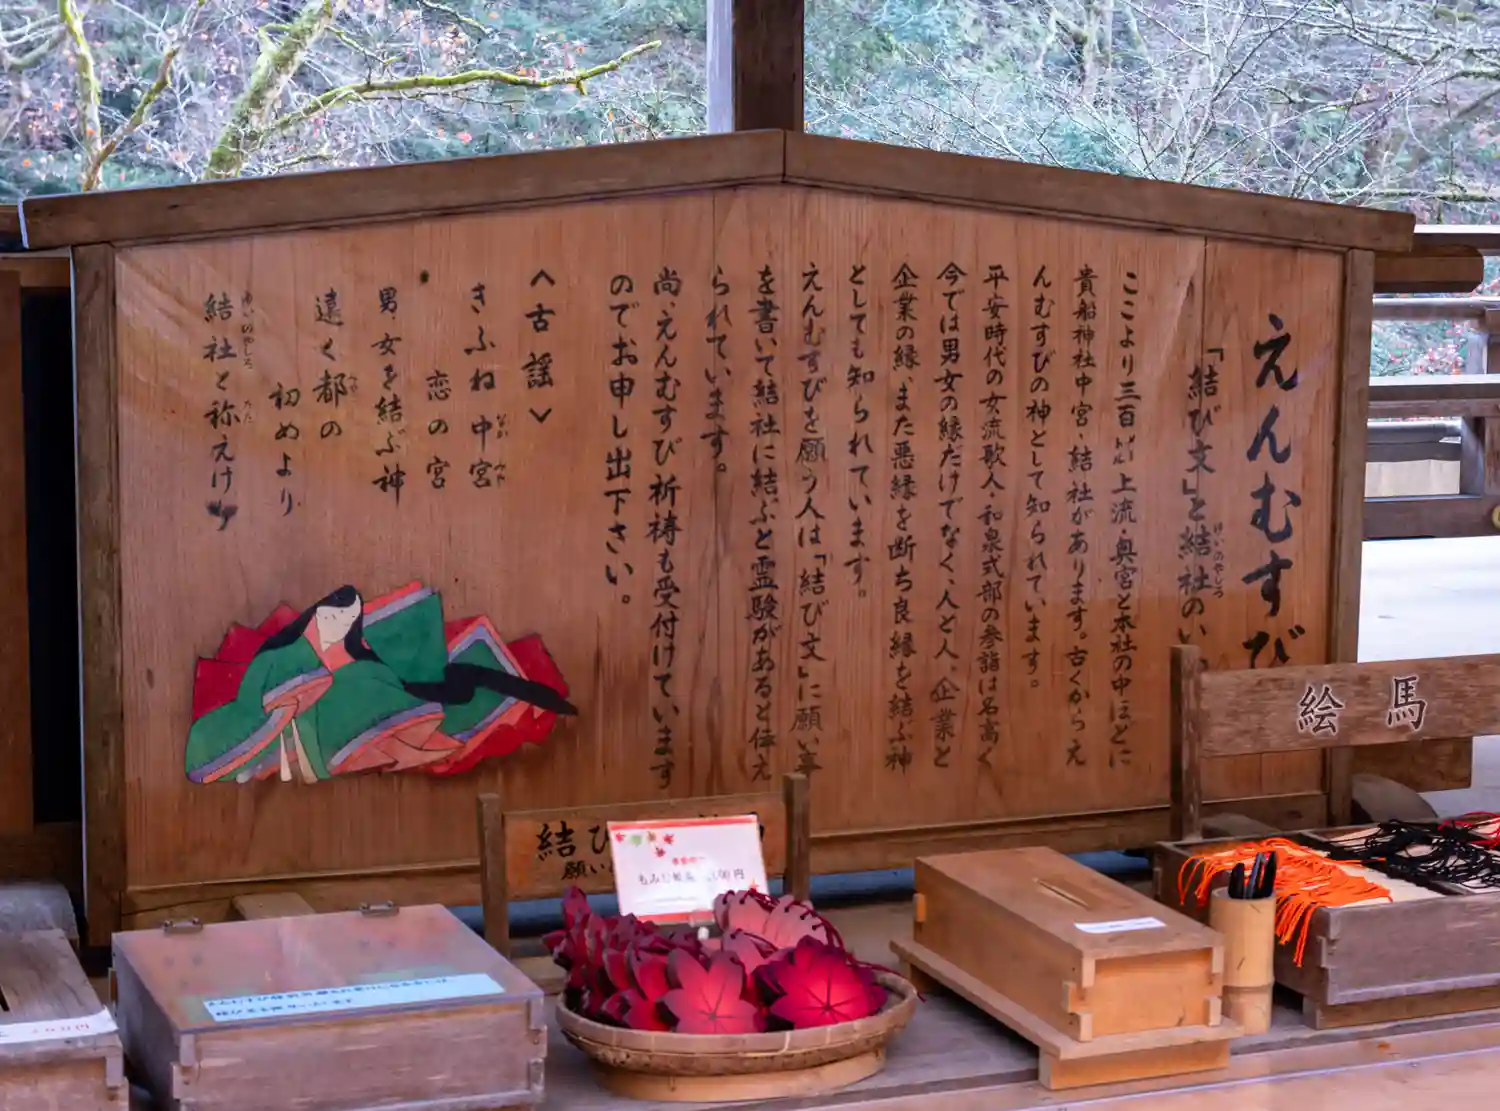 えんむすび
「結び文」と結社のい
けいのやしろ
ここより三百メートル上流・奥宮と本社の中ほどに
貴船神社中宮・結社があります。古くからえ
んむすびの神として知られています。
平安時代の女流歌人・和泉式部の参詣は名高く
今では男女の縁だけでなく、人と人、企業と
企業の縁、また悪縁を断ち良縁を結ぶ神
としても知られています。
えんむすびを願う人は「結び文」に願い事
を書いて結社に結ぶと霊験があると伝え
られています。
尚、えんむすび祈祷も受付けています
のでお申し出下さい。
〈古謡〉
きふね中宮
なかみや
恋の宮
男・女を結ぶ神
遠く都の
初めより
結社と称えけり
ゆいのやしろ
絵馬
結び
願い
もみじ
円